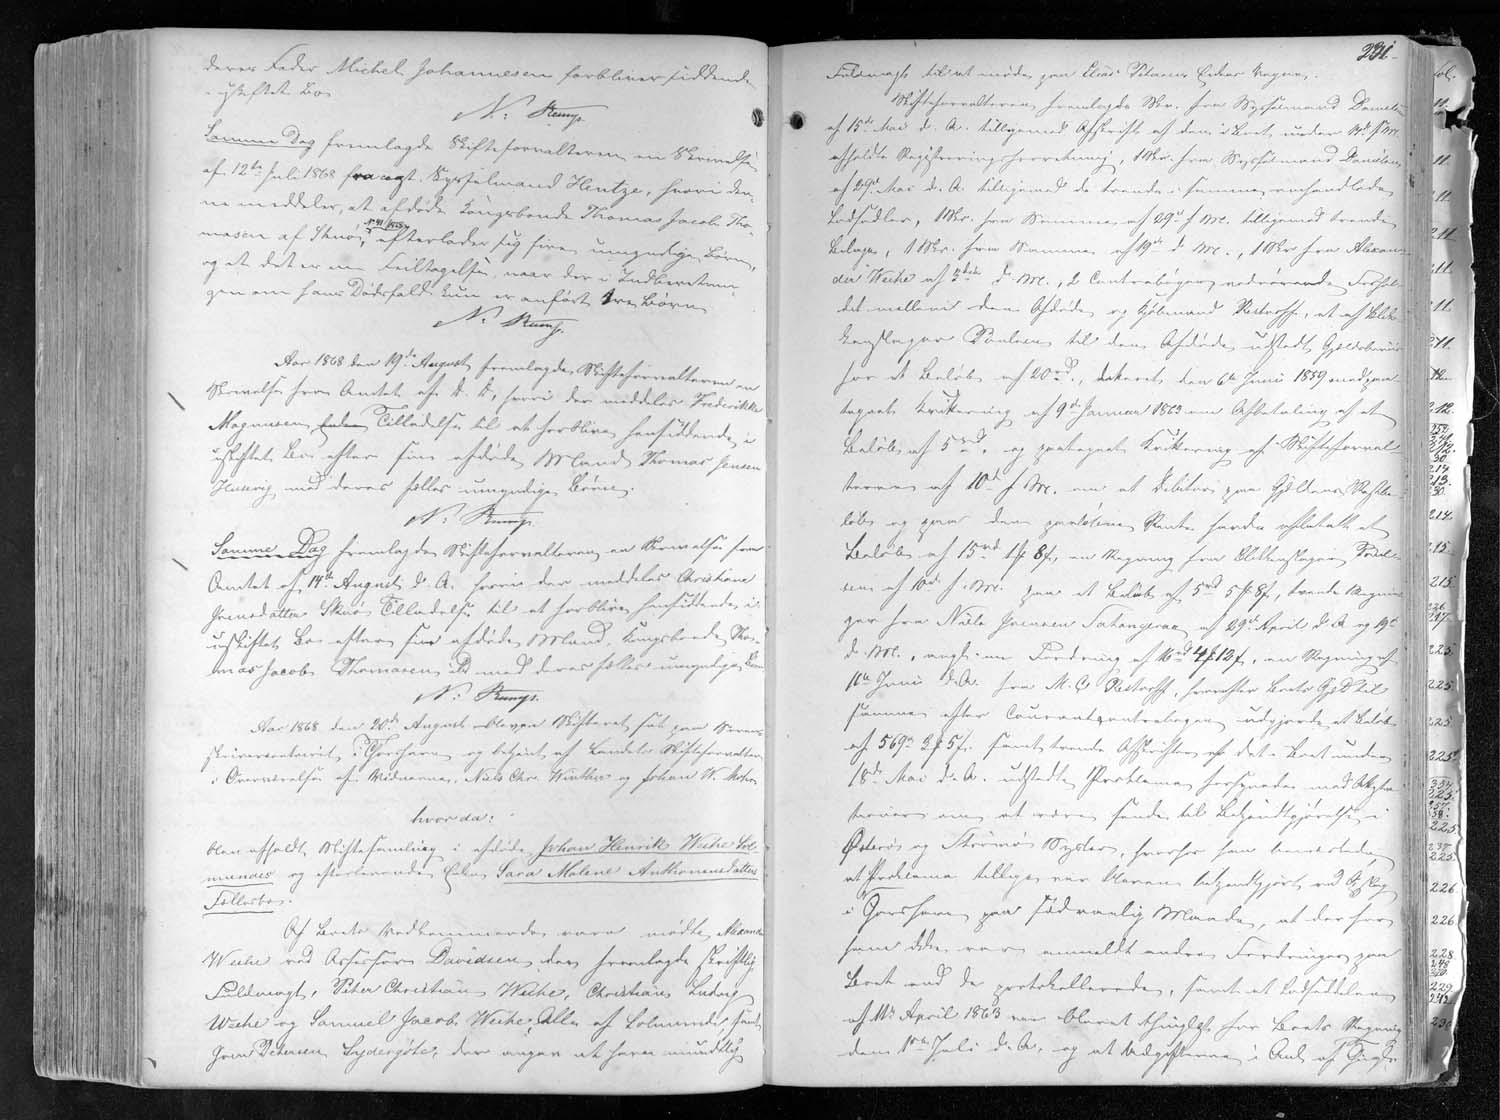 deres Fader Michel Johannesen forbliver siddende
i uskiftet Bo
N. Rump.
Samme Dag fremlagde Skifteforvalteren en Skrivelse
af 12te Juli 1868 fra cgt. Sysselmand Hentze, hvori den-
ne meddeler, at afdøde Kongsbonde Thomas Jacob Tho-
masen af Skuø, efterlader sig fire umyndige Børn,
og at det er en Feiltagelse, naar der i Indberetnin-
gen om hans Dødsfald kun er anført tre Børn
N. Rump.
Aar 1868 den 19de August fremlagde Skifteforvalteren en
Skrivelse fra Amtet af D. D., hvori der meddeles Frederikke
Magnusen Tilladelse til at forblive hensiddende i
uskiftet Bo efter sin afdøde Mand Thomas Jensen
Husevig med deres fælles umyndige Børn.
N. Rump.
Samme Dag fremlagde Skifteforvalteren en Skrivelse fra
Amtet af 14de August d. A. hvori der meddeles Christiane
Joensdatter Skuø Tilladelse til at forblive hensiddende i
uskiftet Bo efter sin afdøde Mand, Kongsbonde Tho-
mas Jacob Thomasen med deres fælles umyndige Børn
N. Rump.
Aar 1868 den 20de August blev Skifteret sat paa Soren-
skrivercontoiret i Thorshavn og betjent af Landets Skifteforvalter
i Overværelse af Vidnerne, Niels Chr. Winther og Johan W.
hvor da:
blev afholdt Skiftesamling i afdøde Johan Henrik Weihe Sol-
mundes og efterlevende Enke Sara Malene Anthoniusdatters
Fællesbo.
Af Boets Vedkommende vare mødte Alexander
Weihe ved Assessor Davidsen, der fremlagde skriftlig
Fuldmagt, Peter Christian Weihe, Christian Ludvig
Weihe og Samuel Jacob Weihe, Alle af Solmunde samt
Joen Petersen Sydergøte, der angav at have mundtlig
231.
Fuldmagt til at møde paa Elias Petersens Enkes Vegne.
Skifteforvalteren fremlagde Skr. fra Sysselmand Danielsen
af 15de Mai d. A. tilligemed Afskrift af den i Boet, under
afholdte Registreringsforretning, 1 Skr. fra Sysselmand Danielsen
af 29de Mai d. A. tilligemed de trende i samme omhandlede
Bodsedler, 1 Skr. fra Samme af 29de f. M. tilligemed trende
Bilage, 1 Skr. fra Samme af 19de d. M., 1 Skr. fra Alexan-
der Weihe af d. M., 2 Contrabøger vedrørende Forhol-
det mellem den Afdøde og Kjøbmand Restorff, et af Blik-
kenslager Poulsen til den Afdøde udstedt Gjældsbeviis
for et Beløb af 20rd., dateret den 6te Juni 1859 med paa-
tegnet Kvittering af 9de Januar 1863 om Afbetaling af et
Beløb af 5rd., og paategnet Kvittering af Skifteforval-
teren af 10de f. M. om at Debitor paa Gjældens Restbe-
løb og paa den paaløbne Rente havde afbetalt et
Beløb af 15rd 1ß 8f, en Regning fra Blikkenslager Poul-
sen af 10de f. M. paa et Beløb af 5rd 5ß 8f, trende Regnin-
ger fra Niels Joensen af 29de April d. A. og 19de
d. M., angl. en Fordring af 16rd 4ß 12f, en Regning af
16de Juni d. A. fra M. C. Restorff, hvorefter Boets Gjæld til
samme efter Contrabogen udgjorde et Beløb
af 569rd 3ß 5f. samt trende Afskrifter af det i Boet under
18de Mai d. A. udstedte Proklama forsynede med Attesta-
tioner om at være sendt til Bekjendtgjørelse i
Østerø og Strømø Sysler, hvorhos han bemærkede,
at Proklama tillige var bleven bekjendtgjort ved Opslag
i Thorshavn paa sædvanlig Maade, at der for
ham ikke var anmeldt andre Fordringer paa
Boet end de protokollerede, samt at Bodsedelen
af 11te April 1863 var blevet thinglæst for Boets Regning
den 1ste Juli d. A., og at Udgifterne i Anl. af